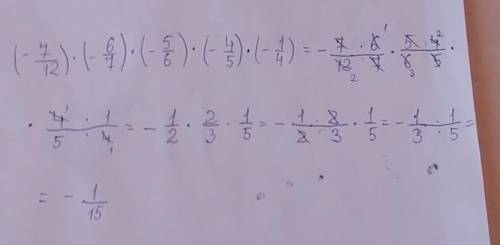 (-7/12)·(-6/7)·(-5/6)·(-4/5)·(-1/4) = - 7·6¹/12₂·7 · 5·4²/6₃·5 ·
· 4¹·1/5·4₁ = - 1/2 · 2/3 · 1/5 = - 1·2/2·3 · 1/5 = - 1·1/3·5 =
= - 1/15